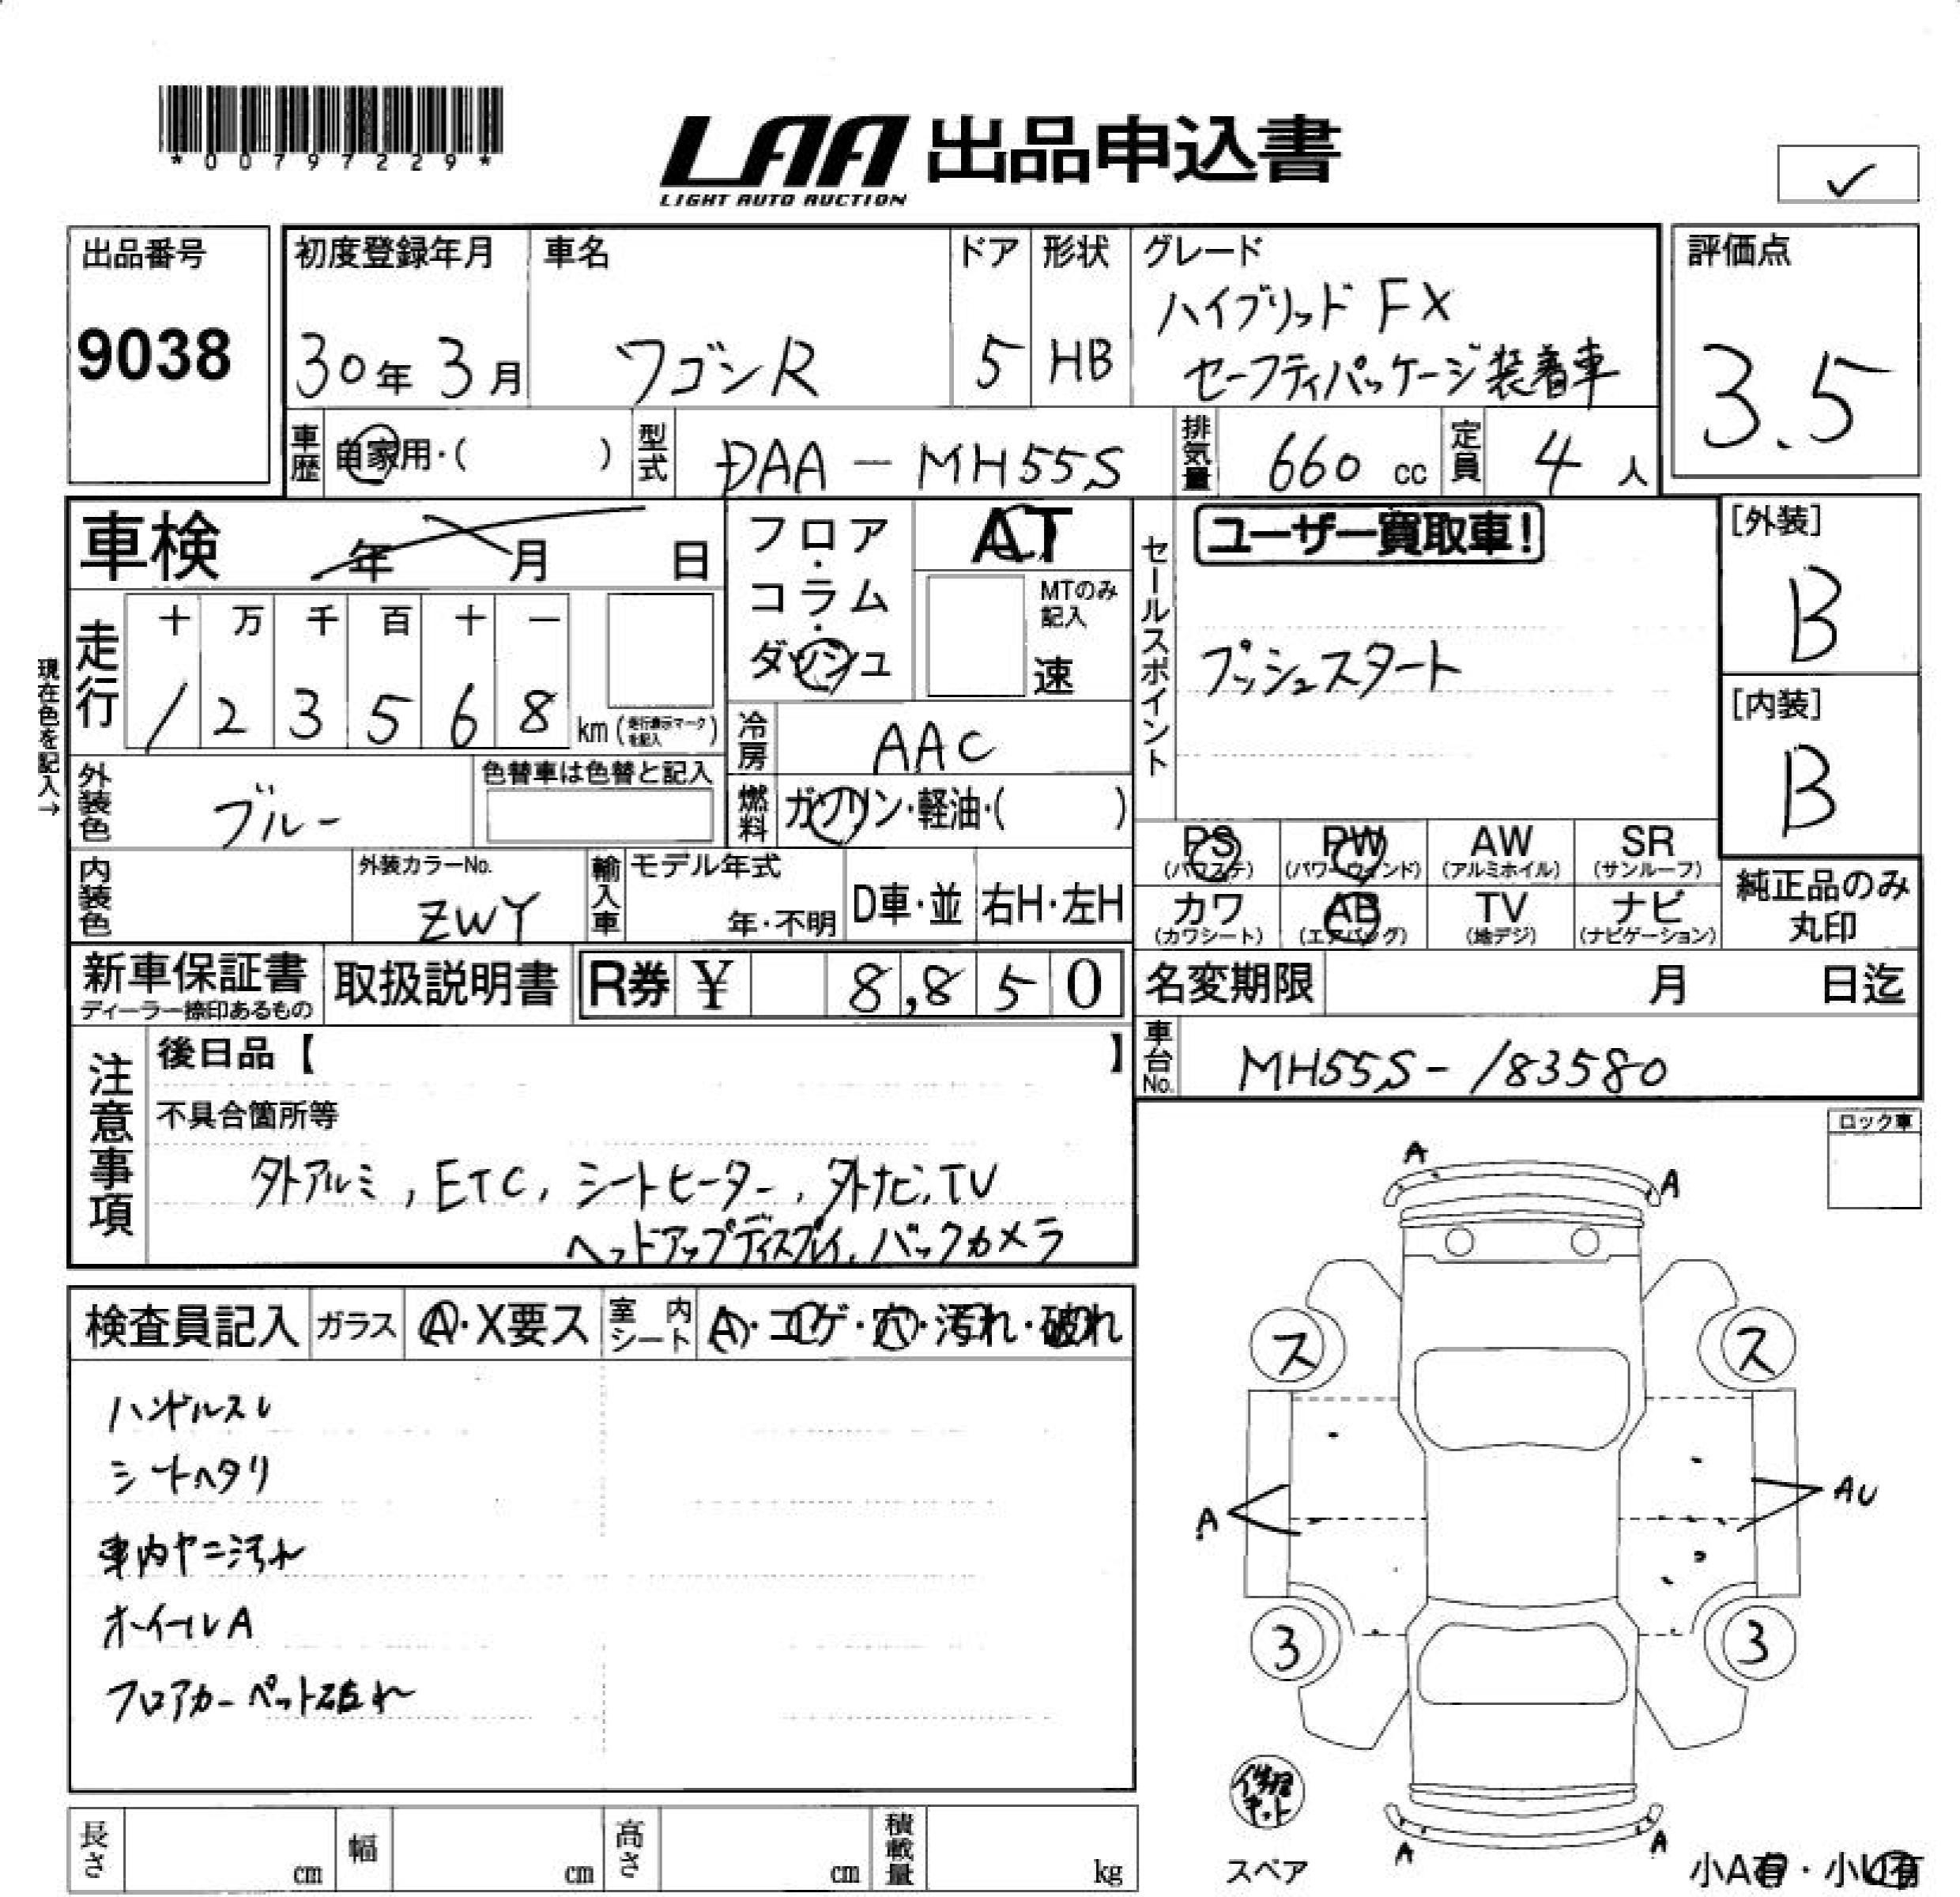 *00797229*
LAA 出品申込書
LIGHT AUTO AUCTION
✓
出品番号
9038
初度登録年月
30年 3月
車名
ワゴンR
ドア
5
形状
HB
グレード
ハイブリッド FX
セーフティパッケージ装着車
評価点
3.5
車歴 自家用・( )
型式 DAA-MH55S
排気量 660 cc
定員 4 人
車検 年 月 日
フロア・コラム・ダッシュ
AT
MTのみ記入
速
セールスポイント
ユーザー買取車!
プッシュスタート
[外装]
B
[内装]
B
現在色を記入→
走行
十 万 千 百 十 一
1 2 3 5 6 8 km (走行表示マークを記入)
冷房 AAC
燃料 ガソリン・軽油・( )
外装色 ブルー
色替車は色替と記入
内装色
外装カラーNo.
ZWY
輸入車 モデル年式
年・不明
D車・並
右H・左H
PS (パワステ)
PW (パワーウィンド)
AW (アルミホイル)
SR (サンルーフ)
カワ (カワシート)
AB (エアバッグ)
TV (地デジ)
ナビ (ナビゲーション)
純正品のみ丸印
新車保証書
ディーラー捺印あるもの
取扱説明書
R券 ¥ 8,850
名変期限 月 日迄
車台No. MH55S-183580
注意事項
後日品【 】
不具合箇所等
外アルミ, ETC, シートヒーター, 外ナビ, TV
ヘッドアップディスプレイ, バックカメラ
ロック車
検査員記入
ガラス A・X要ス
室内シート A・コゲ・穴・汚れ・破れ
ハンドルスレ
シートヘタリ
車内ヤニ汚れ
ホイールA
フロアカーペット破れ
A
A
ス
ス
A
AU
3
3
修理キット
スペア
A
A
小A有・小U有
長さ cm
幅 cm
高さ cm
積載量 kg